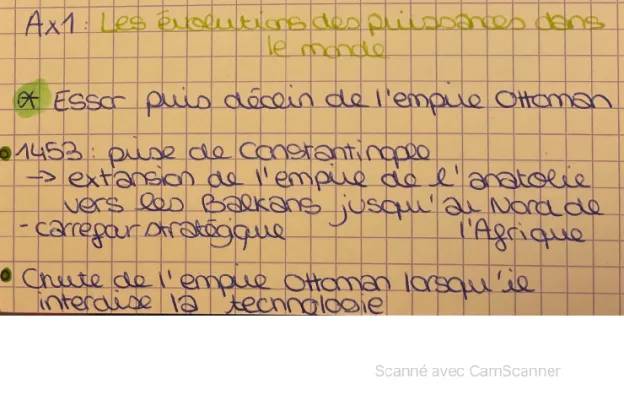 Ax1: Les évolutions des puissances dans
le monde
* Essor puis déclin de l'empire Ottoman
• 1453: prise de Constantinople
→ extansion de l'empire de l'anatolie
vers les Balkans jusqu'au Nord de
l'Afrique
- carrefar stratégique
• Chute de l'empire Ottoman lorsqu'ile
interdise la technologie
Scanné avec CamScanner